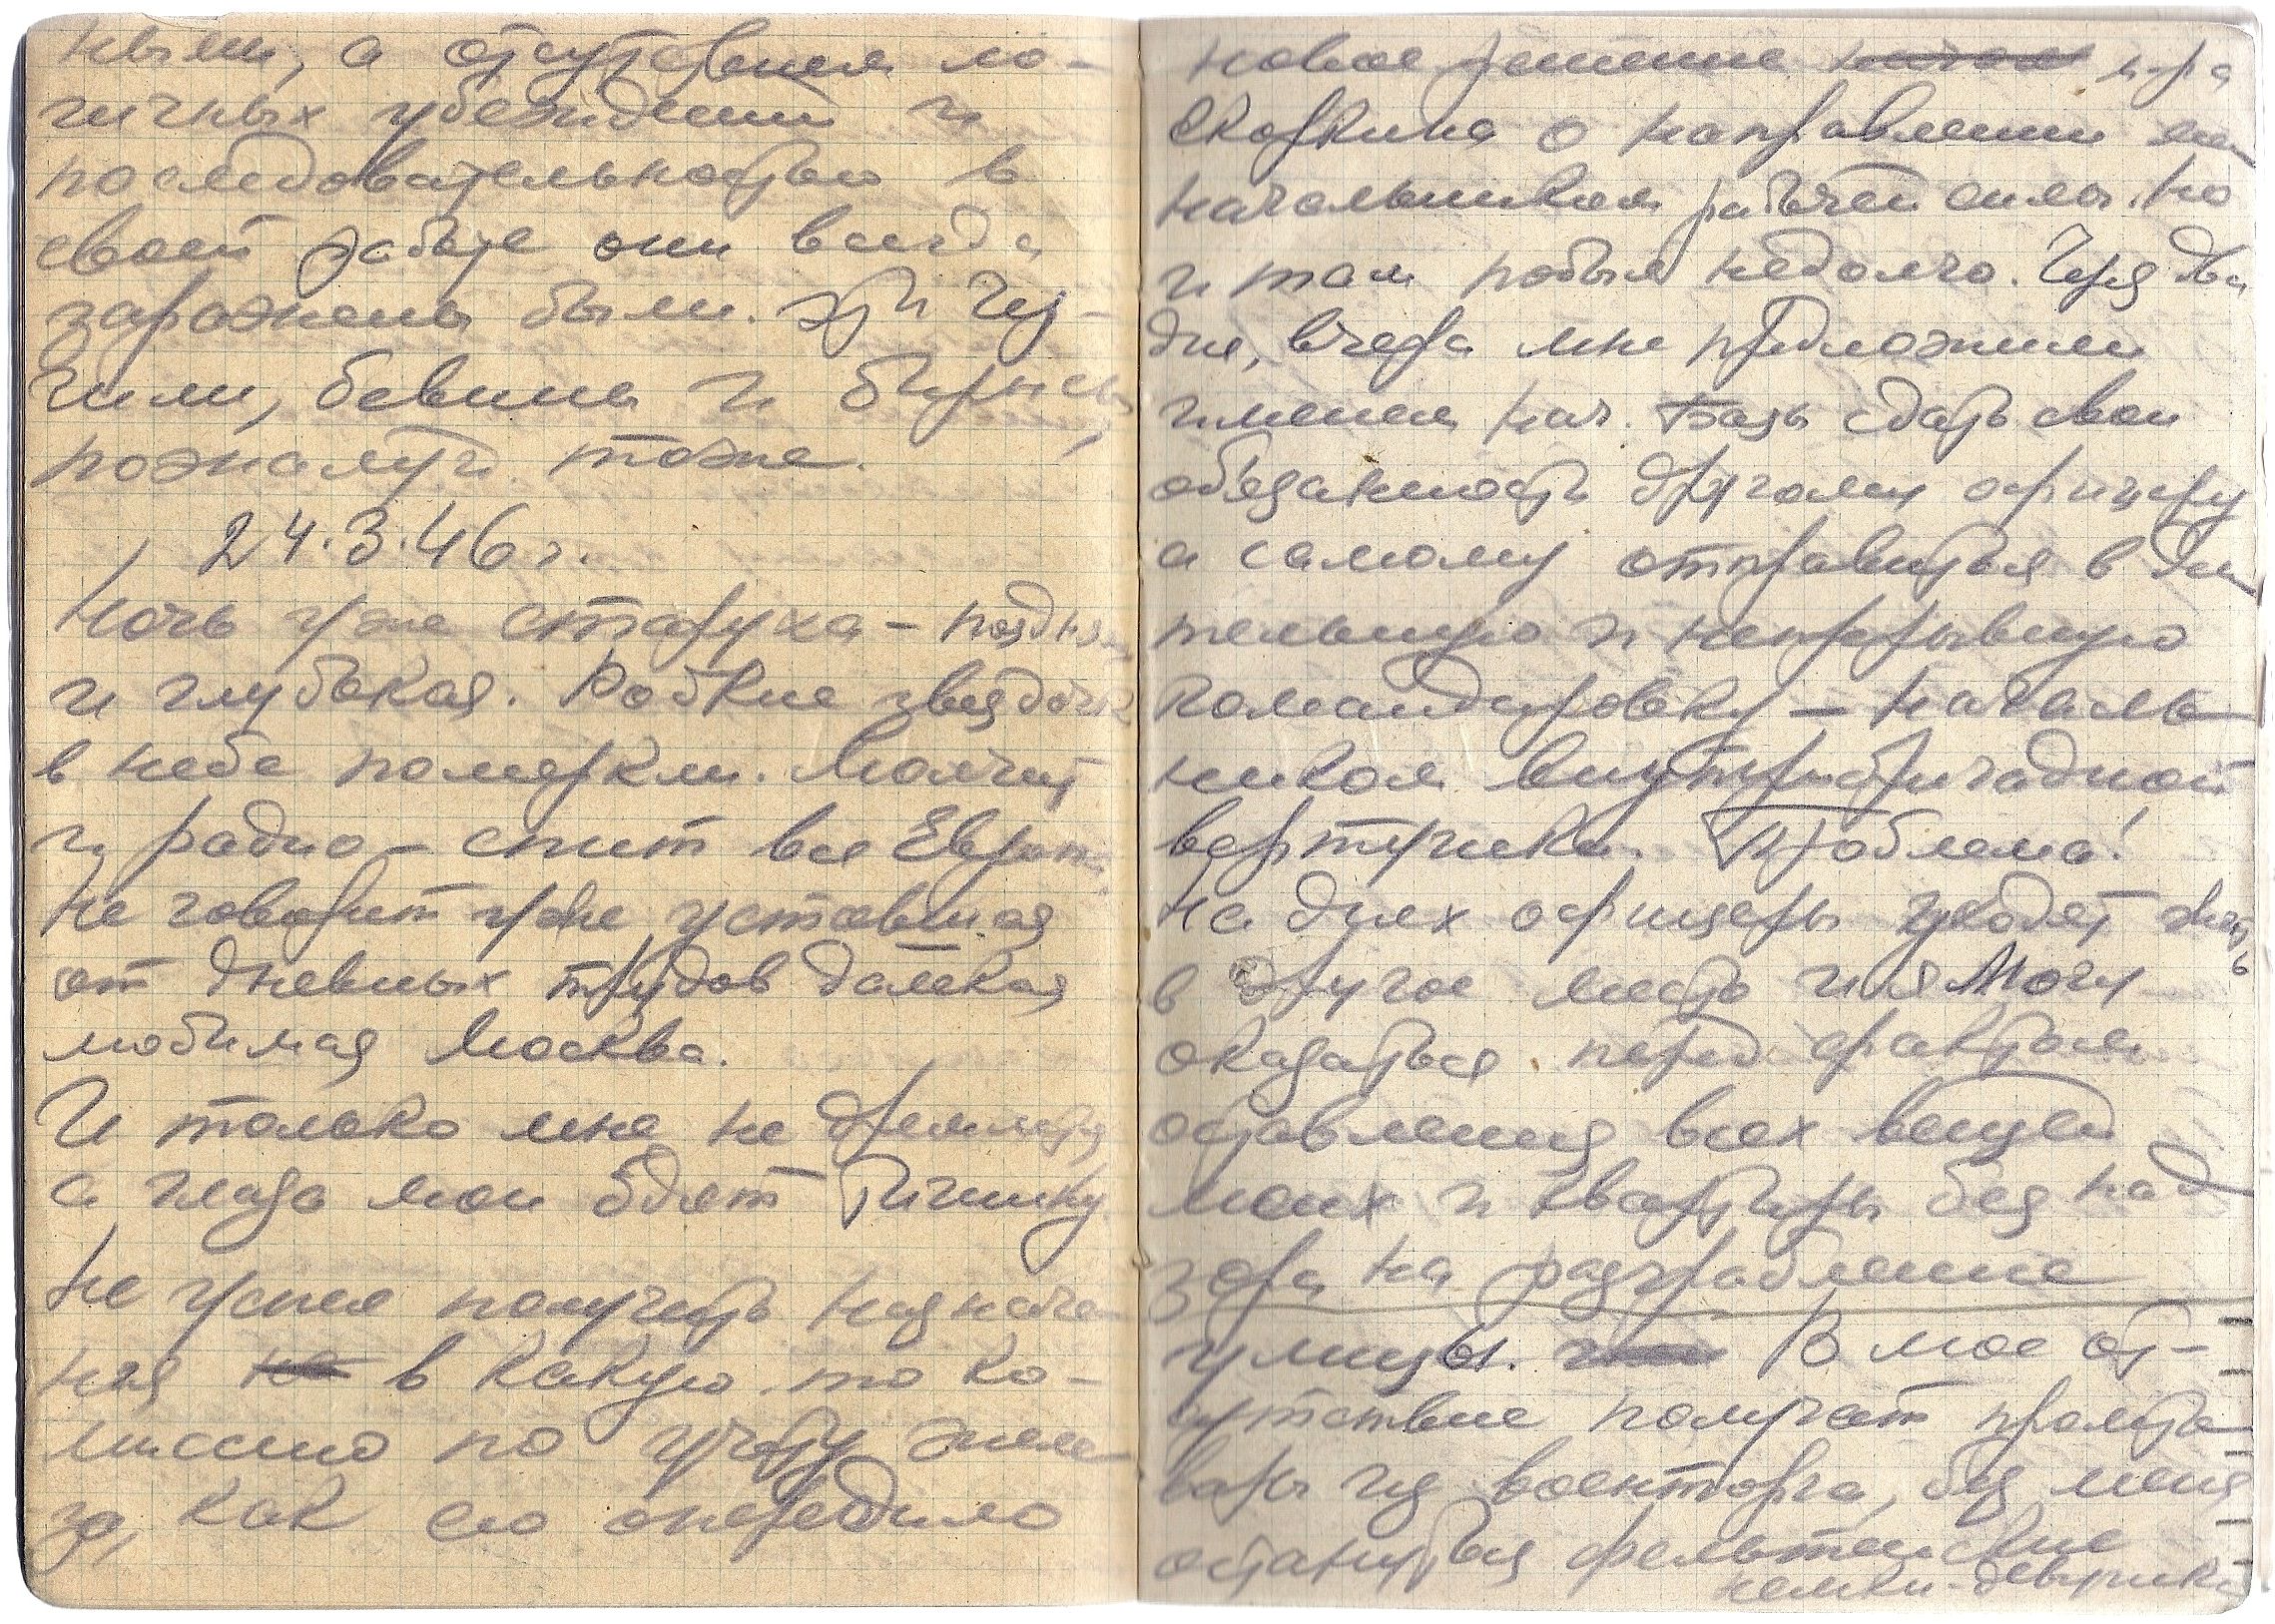 ным, а отсутствием ло-
гичных убеждений и
последовательностью в
своей работе они всегда
заражены были. Эти Чер-
чили, бевины и бирнсы,
пожалуй тоже.
24.3.46 г.
Ночь уже старуха – поздняя
и глубокая. Робкие звездочки
в небе померкли. Молчит
и радио – спит вся Европа.
Не говорит уже уставшая
от дневных трудов далекая
любимая Москва.
И только мне не дремлется,
а глаза мои бдят тишину.
Не успел получить назначе-
ния не в какую то ко-
миссию по учету желе-
за, как его опередило
новое решение м-ра
Скоркина о направлении
начальником рабочей силы. Но
и там побыл недолго. Через два
дня, вчера мне предложили
именем нач. Базы сдать свои
обязанность другому офицеру
а самому отправиться в дли
тельную и непрерывную
командировку – началь-
ником внутрибригадной
вертушки. Проблема!
На днях офицеры уходят жить
в другое место и я могу
оказаться перед фактом
оставления всех вещей
моих и квартиры без над
зора на разграбление
улицы. В мое от-
сутствие получат промто-
вары из военторга, без меня
останутся фельтенские
немки-девушки